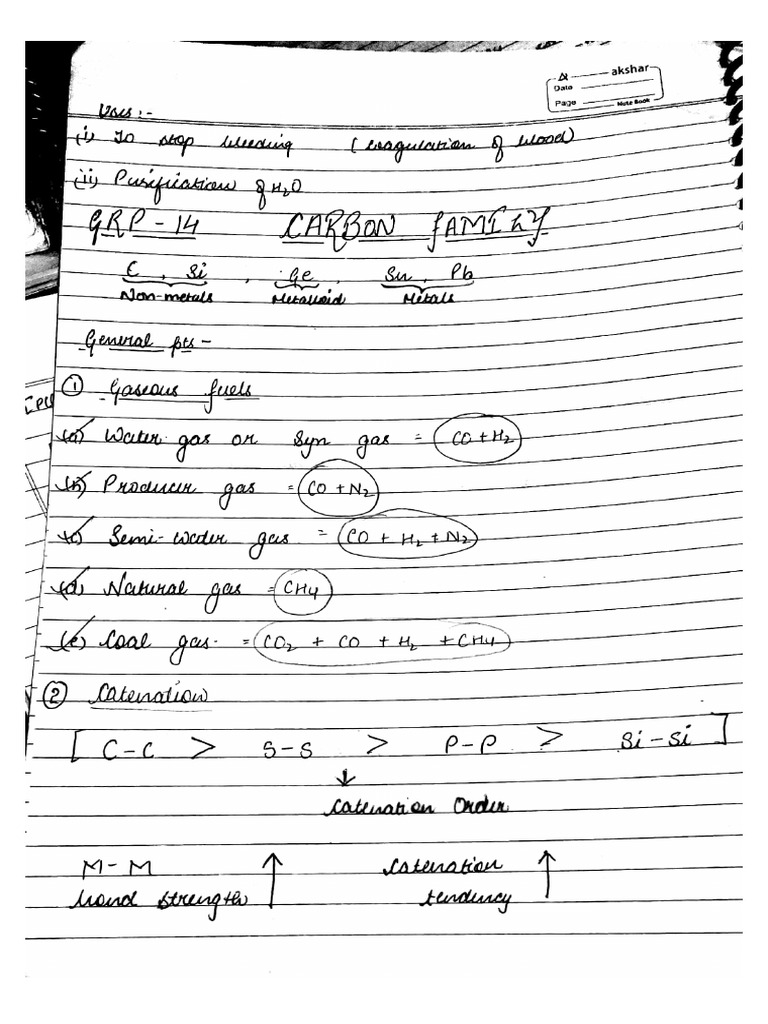 akshar
Date
Page
Note Book
Uses:-
(i) To stop bleeding (coagulation of blood)
(ii) Purification of H₂O
GRP-14 CARBON FAMILY
C, Si, Ge, Sn, Pb
Non-metals Metalloid Metals
General pts-
① Gaseous fuels
(a) Water gas or Syn gas = CO+H₂
(b) Producer gas = CO+N₂
(c) Semi-water gas = CO + H₂ + N₂
(d) Natural gas = CH₄
(e) Coal gas = CO₂ + CO + H₂ + CH₄
② Catenation
[C-C > S-S > P-P > Si-Si]
↓
Catenation Order
M-M ↑ Catenation ↑
bond strength tendency